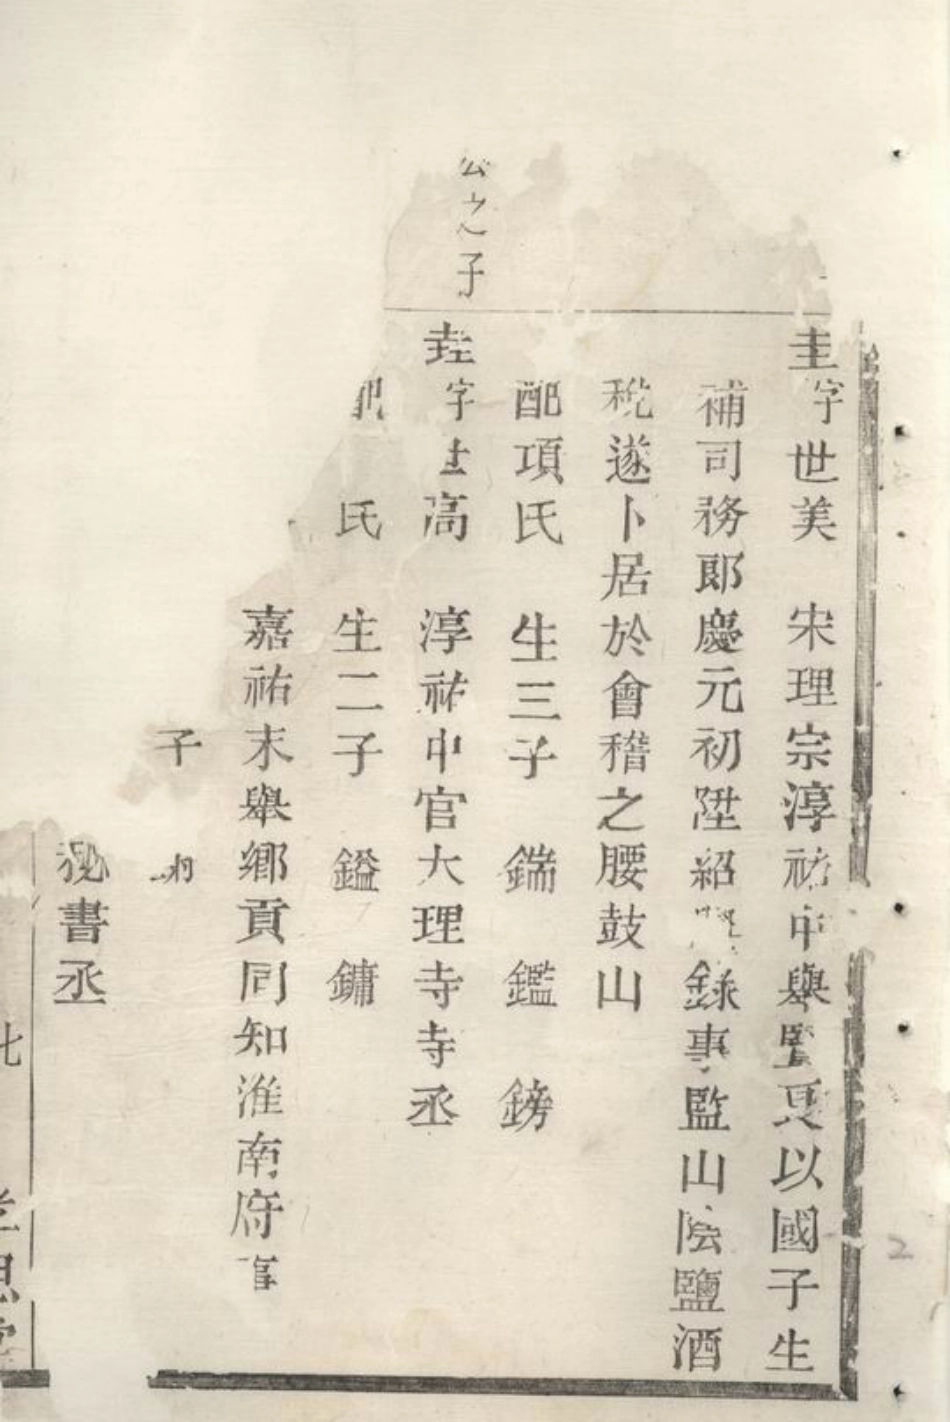 圭字世美 宋理宗淳祐中舉賢良以國子生
補司務郎慶元初陞紹興錄事監山陰鹽酒
稅遂卜居於會稽之腰鼓山
配項氏 生三子 鍴 鑑 鎊
公之子
垚字世高 淳祐中官大理寺寺丞
配 氏 生二子 鎰 鏞
嘉祐末舉鄉貢同知淮南府事
子
秘書丞
七
孝思堂